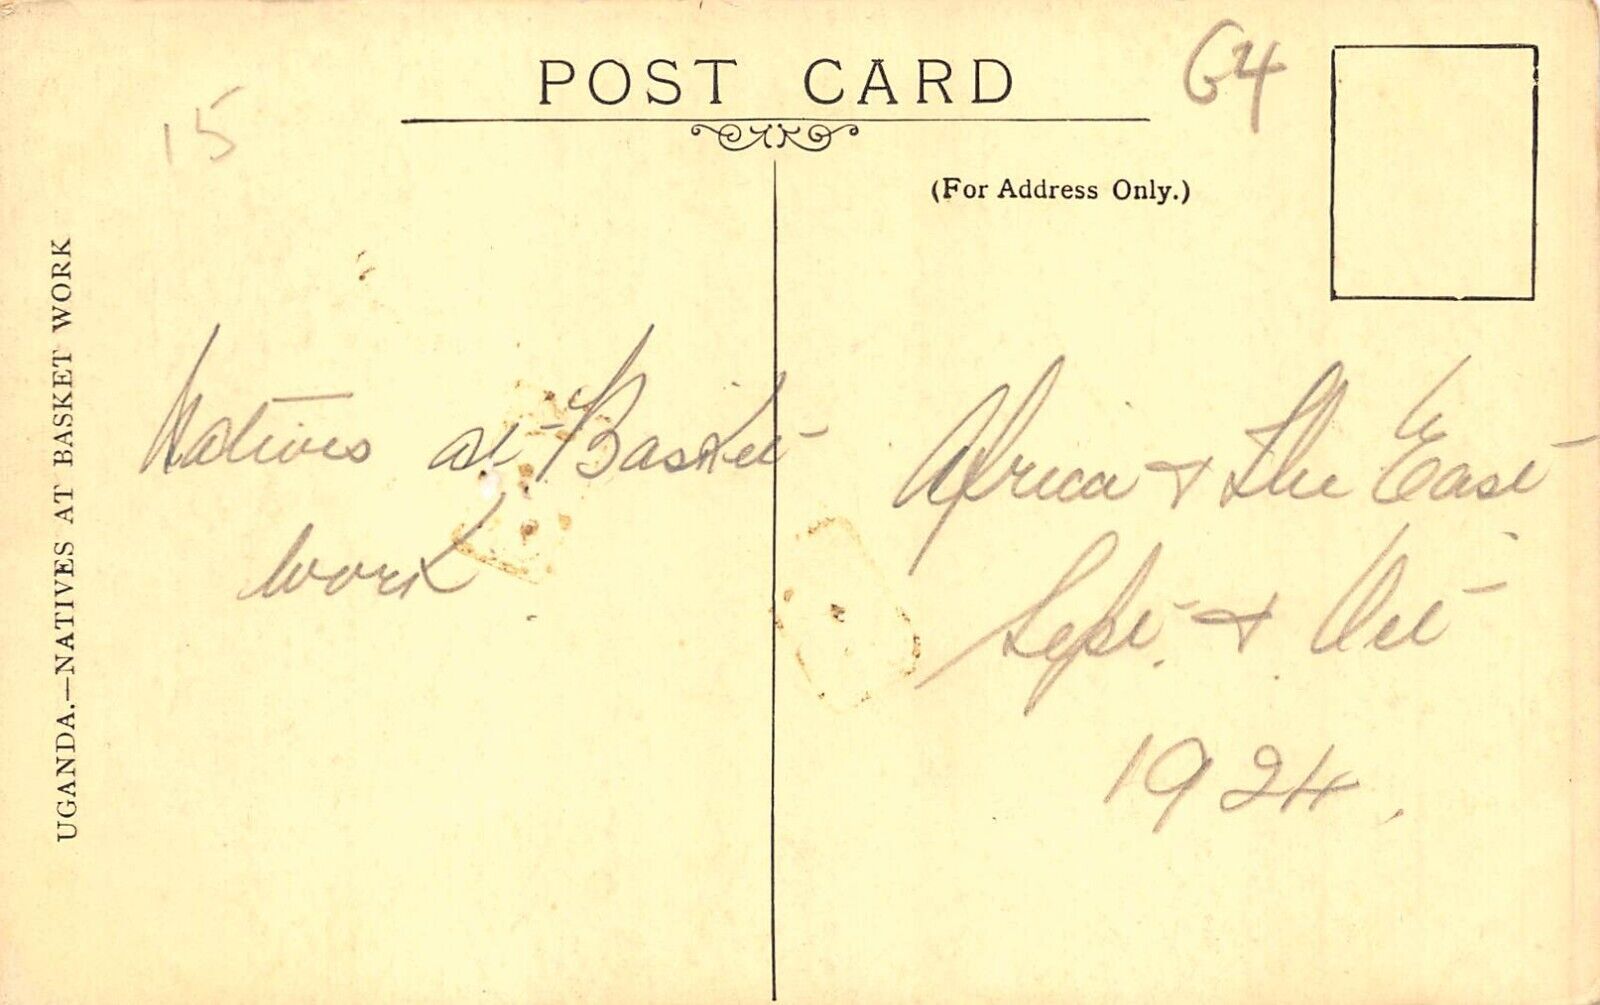 POST CARD
64
15
(For Address Only.)
UGANDA.—NATIVES AT BASKET WORK
Natives at Basket
work
Africa & The East
Sept. & Oct
1924.